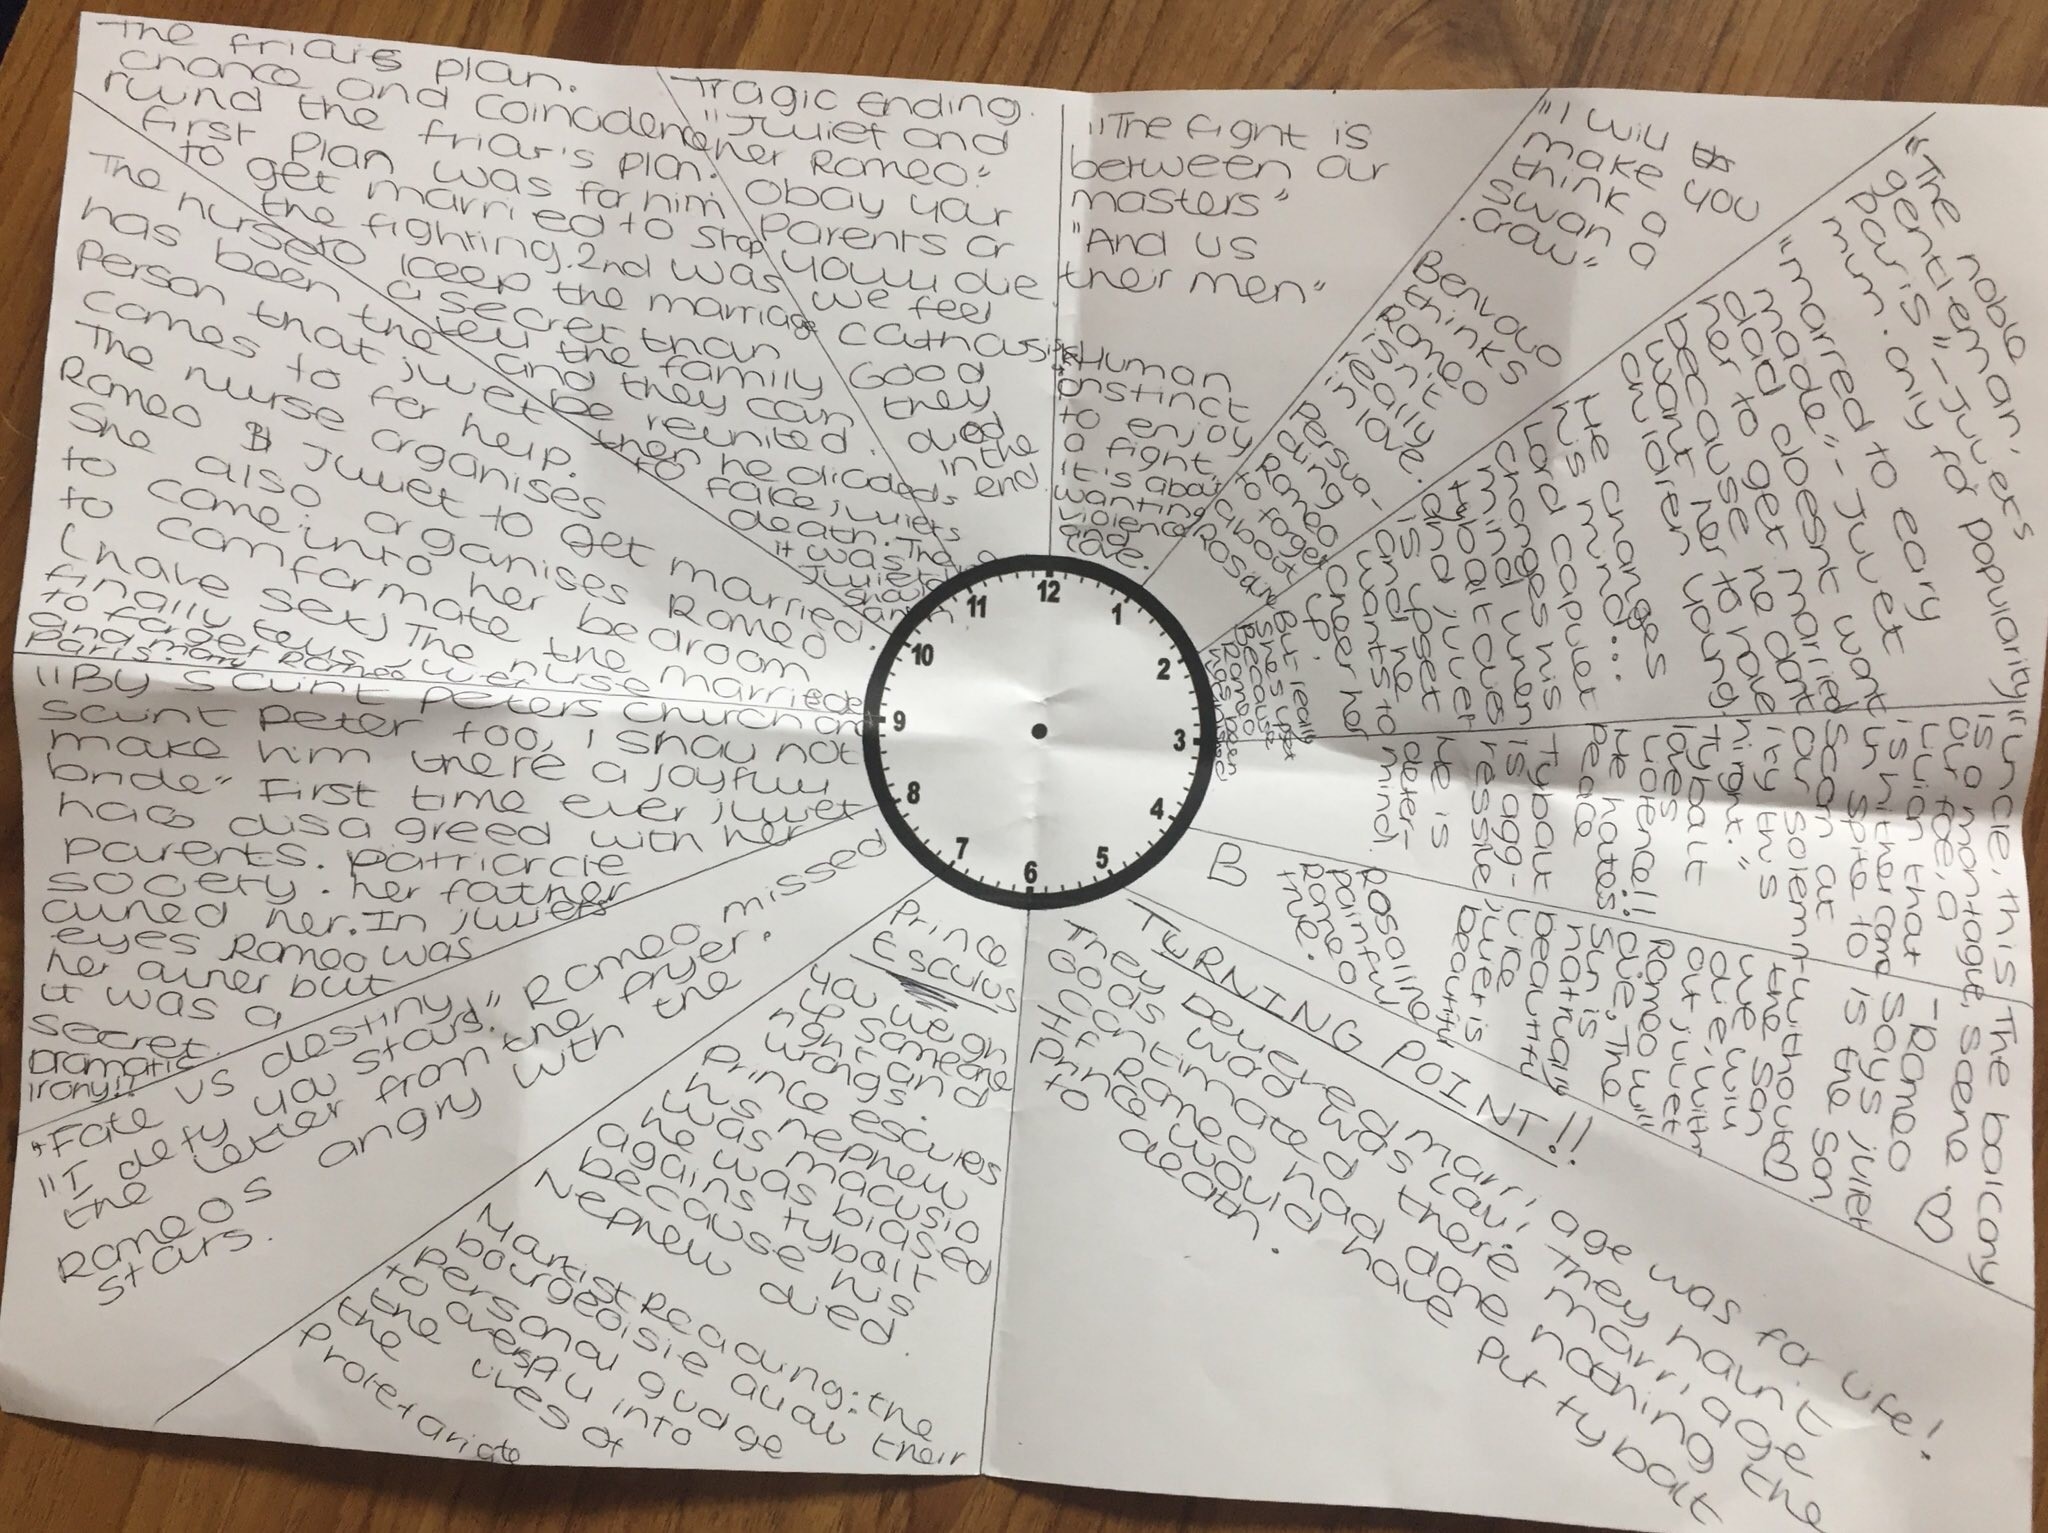 "The fight is
between our
masters"
"And us
their men"
Human
instinct
to enjoy
a fight
it's about
wanting
violence
love.
"I will
make you
think a
swan a
crow"
Benvolio
thinks
Romeo
isn't
really
in love.
Persua-
ding
Romeo
to forget
about
"The noble
gentleman,
paris" - Juliets
mum. only for popularity
"married to early
made" - Juliet
dad doesnt want
her to get married
because he dont
want her to have
children young.
He changes
his mind...
Lord capulet
changes his
mind when
tybalt dies
and Juliet
is upset
and he
wants to
cheer her
up.
But really
she's upset
Because
Romeo
has been
"uncle, this
is a montague,
our foe, a
villian that
is hither come
in spite to
scorn at
our solemn
ity this
night."
Tybalt
loves
violence!!
He hates
peace
Tybalt
is agg-
ressive
He is
deter-
mind!
The balcony
scene ♡
-Romeo
says juliet
is the son
without ♡
the son
we will
die, with
out juliet
Romeo will
die, The
sun is
natrually
beautiful
like
juliet is
beautiful
rosaline
painfully
Romeo
true.
B
TURNING POINT!!
They Delivered marriage was for life!
Gods was law! they havnt
there marriage
If Romeo had done nothing the
Prince would have put tybalt
to death.
Prince
Esculus
You weigh
up someone
right and
wrongs.
Prince escules
his nephew
was macusio
he was biased
agains tybalt
because his
Nephew died.
Marxist Reading: the
bourgeoisie allow their
personal gudage
to overspill into
the lives of
the
proletariate
"Fate vs destiny"
"I defy you stars." Romeo missed
the letter from the fryer.
Romeos angry with the
stars.
"By saint peters church and
saint peter too, I shall not
make him there a joyful
bride" First time ever juliet
has disagreed with her
parents. patriarcle
society. her father
owned her. In juliets
eyes Romeo was
her owner but
it was a
secret.
Dramatic
irony!!
The nurse
has been the
person that juliet
comes to for help.
The nurse organises
Romeo & Juliet to get married.
She also organises Romeo
to come into her bedroom
to comformate the marriede
(have sex) The nurse
finally tells juliet
to forget Romeo
and marry
Paris.
The friars plan.
chance and coincidence
ruind the friar's plan.
first plan was for him
to get married to stop
the fighting. 2nd was
to keep the marriage
a secret than
tell the family
and they can
be reunited.
then he dicodeds
to fake juliets
death. Then
it was
Juliets
Tragic Ending.
"Juliet and
her Romeo"
obay your
parents or
youll die
we feel
catharsis
Good
they
died
in the
end.
12
1
2
3
4
5
6
7
8
9
10
11